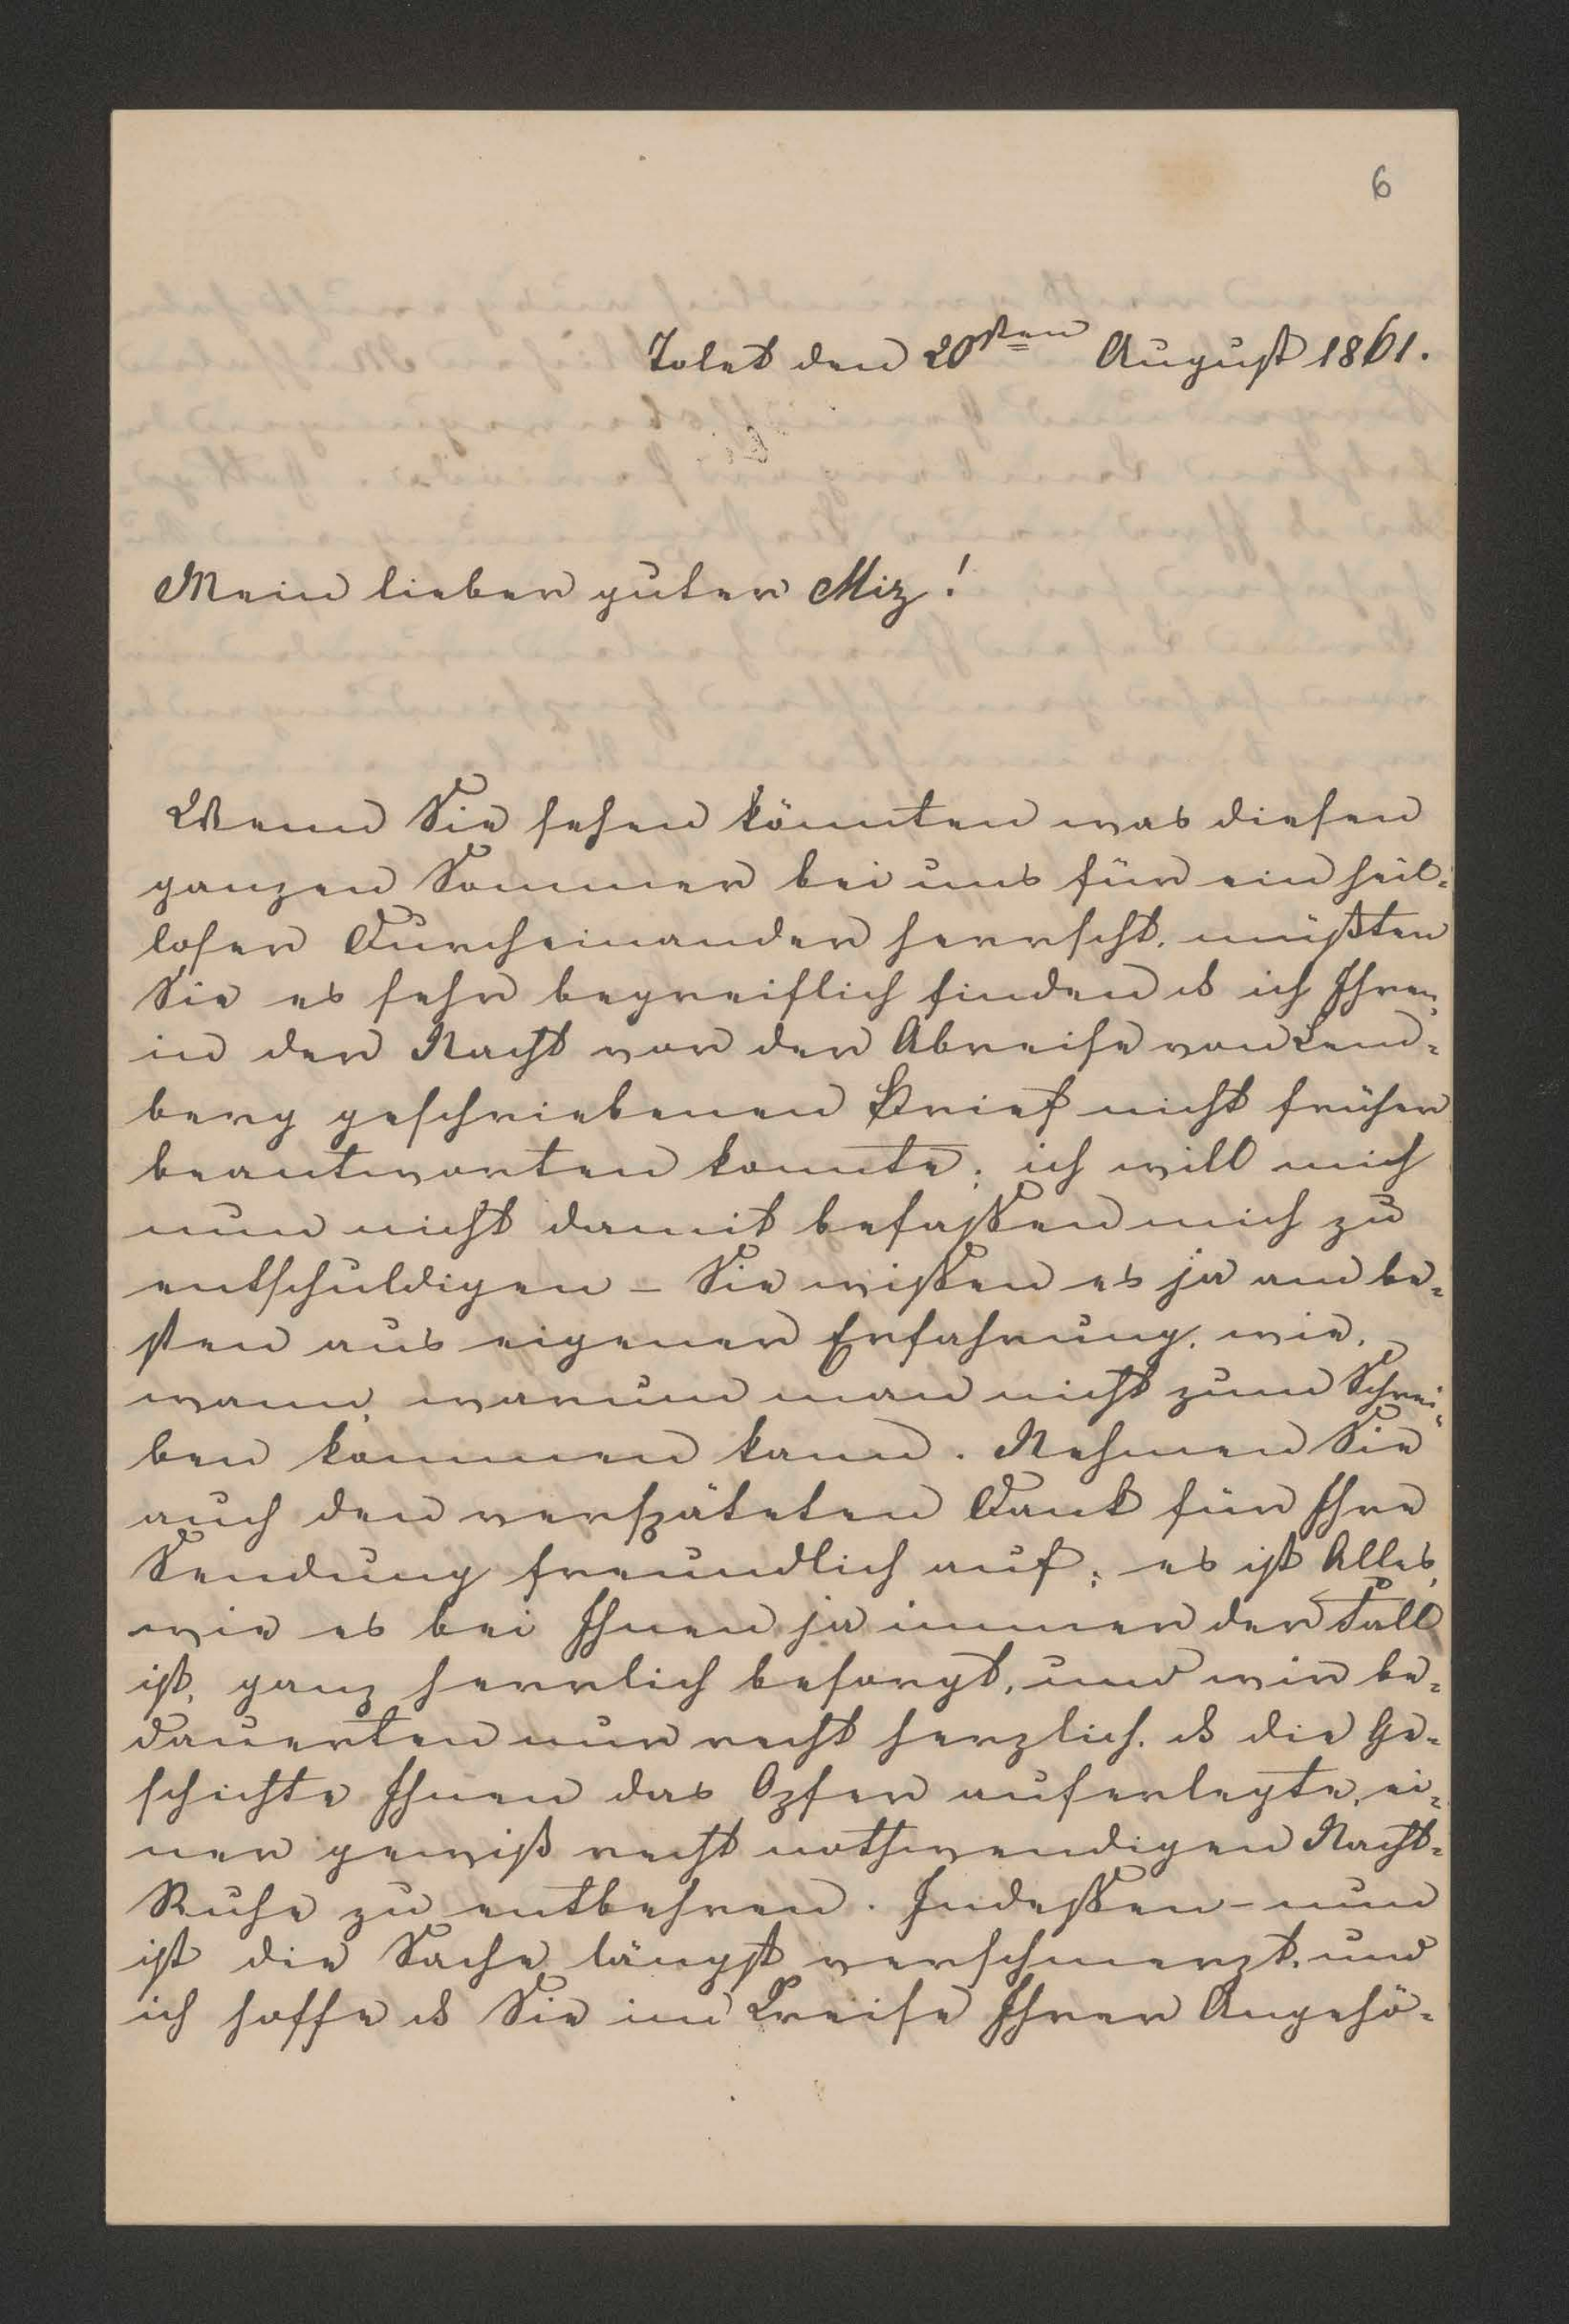 6
Tolet den 20sten August 1861.
Mein lieber guter Miz!
Wenn Sie sehen könnten was diesen
ganzen Sommer bei uns für ein heil-
loser Durcheinander herrscht, müßten
Sie es sehr begreiflich finden ds ich Ihren,
in der Nacht vor der Abreise von Lem-
berg geschriebenen Brief nicht früher
beantworten konnte; ich will mich
nun nicht damit befaßen mich zu
entschuldigen – Sie wißen es ja am be-
sten aus eigener Erfahrung, wie,
wann, warum man nicht zum Schrei-
ben kommen kann. Nehmen Sie
auch den verspäteten Dank für Ihre
Sendung freundlich auf; es ist Alles,
wie es bei Ihnen ja immer der Fall
ist, ganz herrlich besorgt, und wir be-
dauerten nur recht herzlich, ds die Ge-
schichte Ihnen das Opfer auferlegte, ei-
ner gewiß recht nothwendigen Nacht-
Ruhe zu entbehren. Indeßen – nun
ist die Sache längst verschmerzt, und
ich hoffe ds Sie im Kreise Ihrer Angehö-